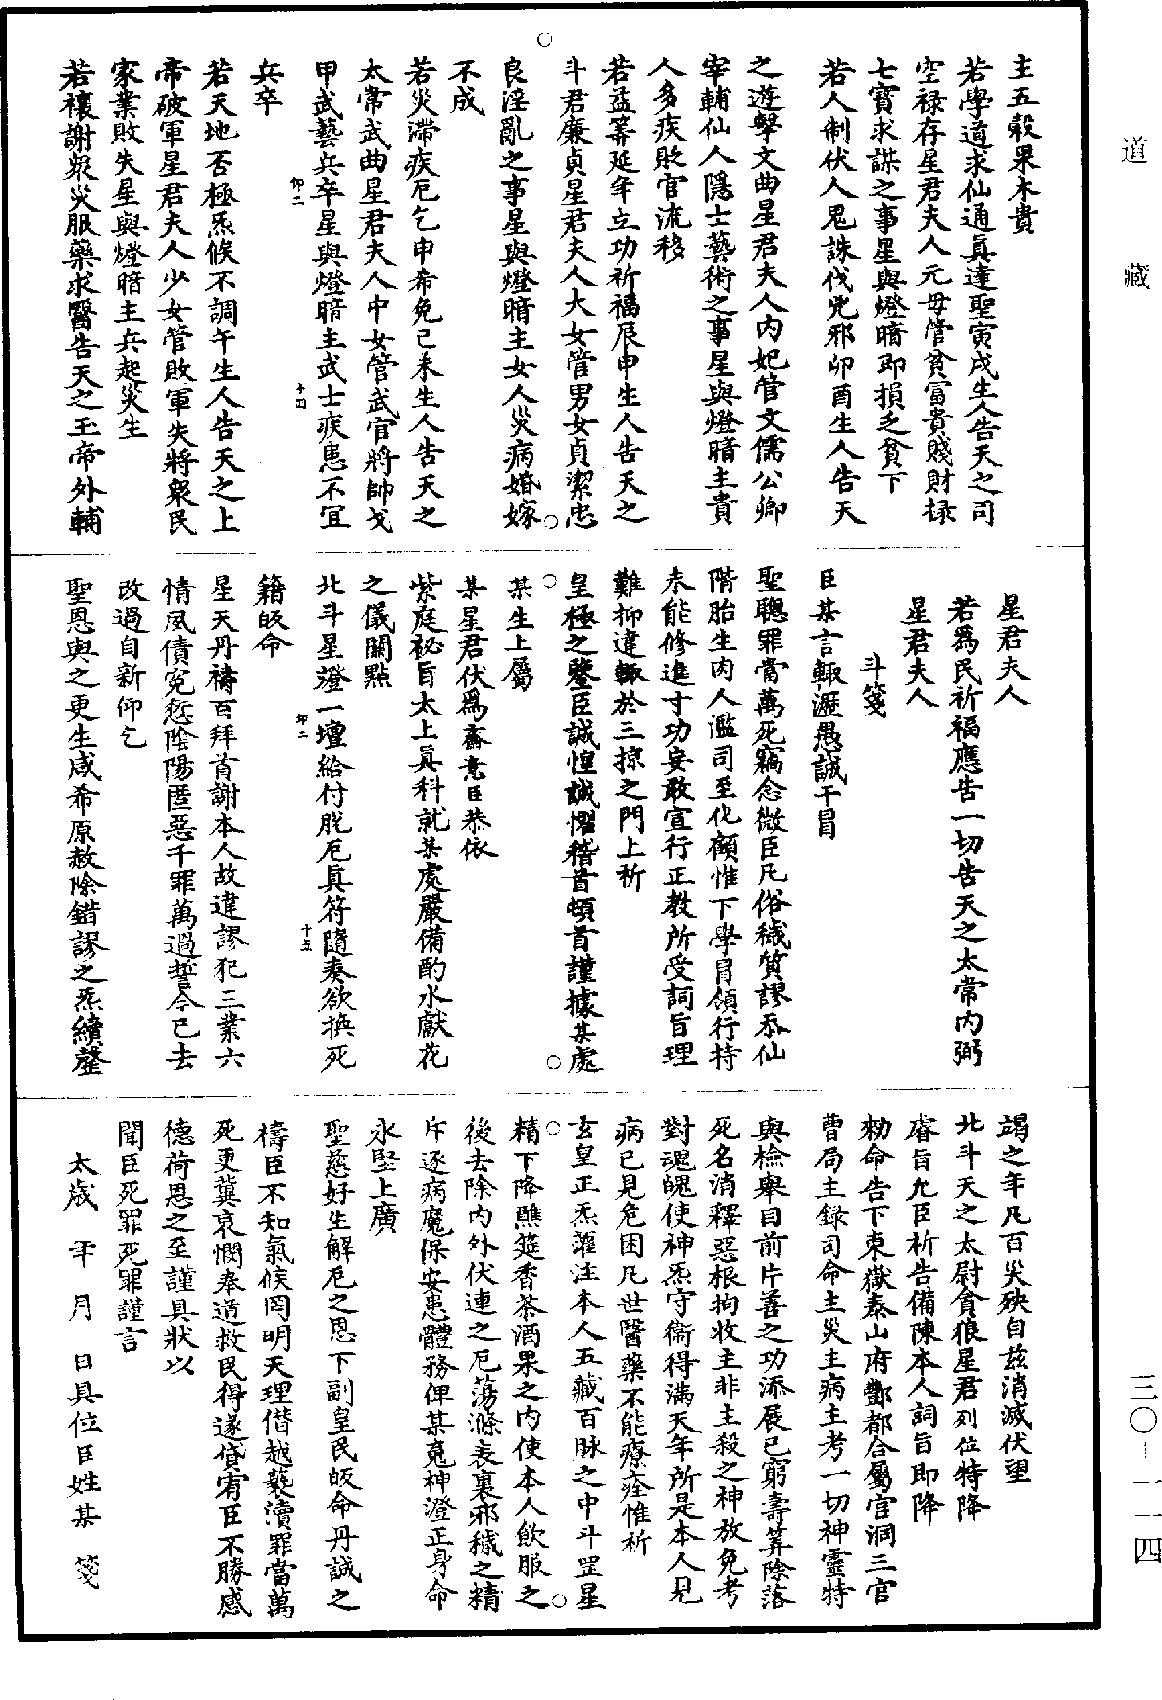 道藏
三〇–一一四
主五穀果木貴
若學道求仙通眞達聖寅戌生人告天之司
空祿存星君夫人元毋管貧富貴賤財祿
七寳求謀之事星與燈暗即損乏貧下
若人制伏人鬼誅伐兇邪卯酉生人告天
之遊擊文曲星君夫人內妃管文儒公卿
宰輔仙人隱士藝術之事星與燈暗主貴
人多疾敗官流移
若益筭延年立功祈福辰申生人告天之
斗君廉貞星君夫人大女管男女貞潔忠
良淫亂之事星與燈暗主女人災病婚嫁
不成
若災滯疾厄乞申希免巳未生人告天之
太常武曲星君夫人中女管武官將帥戈
甲武藝兵卒星與燈暗主武士疾患不宜
卯二 十四
兵卒
若天地否極炁候不調午生人告天之上
帝破軍星君夫人少女管敗軍失將衆民
家業敗失星與燈暗主兵起災生
若禳謝衆災服藥求醫告天之玉帝外輔
星君夫人
若爲民祈福應告一切告天之太常內弼
星君夫人
斗箋
臣某言輙瀝愚誠干冒
聖聽罪當萬死竊念微臣凡俗穢質謬忝仙
階胎生肉人濫司至化顧惟下學冐領行持
未能修進寸功安敢宣行正教所受詞旨理
難抑違輙於三掠之門上祈
皇極之鑒臣誠惶誠懼稽首頓首謹據某處
某生上屬
某星君伏爲齋意臣恭依
紫庭祕旨太上眞科就某處嚴備酌水獻花
之儀關點
北斗星燈一壇給付脫厄眞符隨奏欲換死
卯二 十五
籍皈命
星天丹禱百拜首謝本人故違謬犯三業六
情夙債寃愆陰陽匿惡千罪萬過誓今已去
改過自新仰乞
聖恩與之更生咸希原赦除錯謬之炁續罄
竭之年凡百災殃自茲消滅伏望
北斗天之太尉貪狼星君列位特降
睿旨允臣祈告備陳本人詞旨即降
勑命告下東嶽泰山府酆都合屬官洞三官
曹局主錄司命主災主病主考一切神靈特
與檢舉目前片善之功添展已窮壽筭除落
死名消釋惡根拘收主非主殺之神放免考
對魂魄使神炁守衞得滿天年所是本人見
病已見危困凡世醫藥不能療痊惟祈
玄皇正炁灌注本人五藏百脉之中斗罡星
精下降醮筵香茶酒果之內使本人飲服之
後去除內外伏連之厄蕩滌表裏邪穢之精
斥逐病魔保安患體務俾某䰟神澄正身命
永堅上廣
聖慈好生解厄之恩下副皇民皈命丹誠之
禱臣不知氣候罔明天理僭越䙝瀆罪當萬
死更冀哀憫奉道救民得遂貸宥臣不勝感
德荷恩之至謹具狀以
聞臣死罪死罪謹言
太歲 年 月 日具位臣姓某 箋